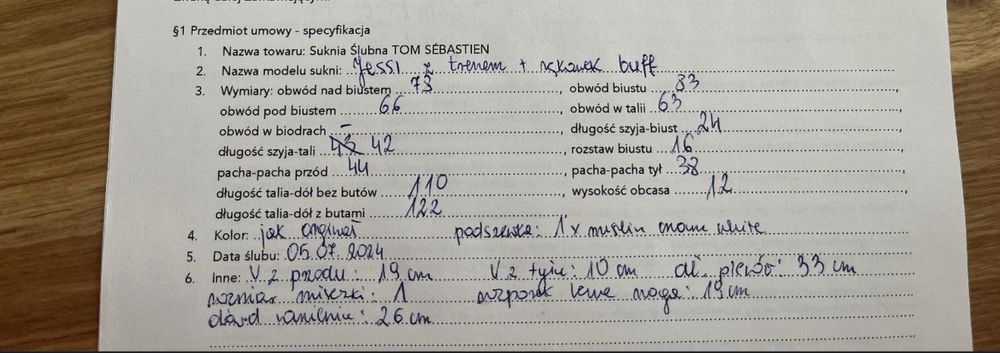 §1 Przedmiot umowy - specyfikacja
1. Nazwa towaru: Suknia Ślubna TOM SÉBASTIEN
2. Nazwa modelu sukni: Jessi z trenem + rękawek buff
3. Wymiary: obwód nad biustem 73, obwód biustu 83,
obwód pod biustem 66, obwód w talii 63,
obwód w biodrach –, długość szyja-biust 24,
długość szyja-tali 42, rozstaw biustu 16,
pacha-pacha przód 44, pacha-pacha tył 38,
długość talia-dół bez butów 110, wysokość obcasa 12,
długość talia-dół z butami 122
4. Kolor: jak orginał podszewka: 1x muślin white
5. Data ślubu: 05.07.2024
6. Inne: V z przodu: 19 cm V z tyłu: 10 cm dł. pleców: 33 cm
rozmiar miseczki: 1 rozporek lewa noga: 19 cm
obwód ramienia: 26 cm